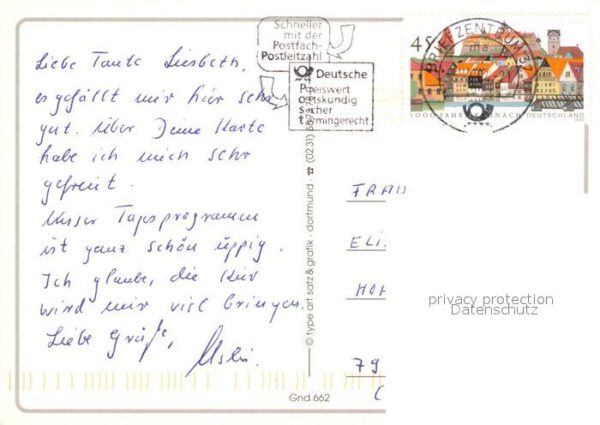 Schneller
mit der
Postfach-
Postleitzahl
Deutsche
Preiswert
Ortskundig
Sicher
termingerecht
BRIEFZENTRUM
45
1000 JAHRE KRONACH DEUTSCHLAND
Liebe Tante Liesbeth,
es gefällt mir hier sehr
gut. Über Deine Karte
habe ich mich sehr
gefreut.
Unser Tagesprogramm
ist ganz schön üppig.
Ich glaube, die Kur
wird mir viel bringen.
Liebe Grüße,
© type art satz & grafik · dortmund · ☎ (0231)
FRAU
ELI
HO
79
Gnd 662
privacy protection
Datenschutz